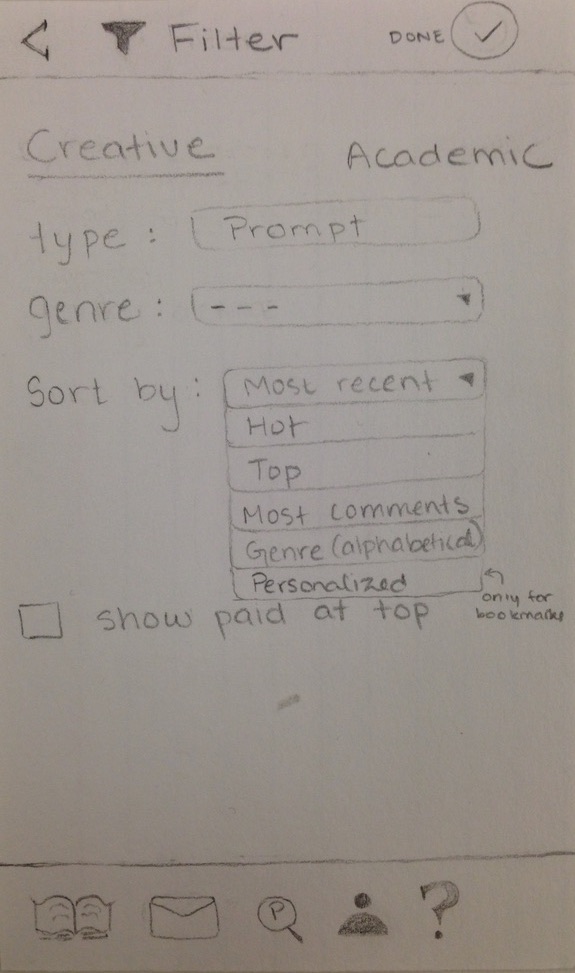 Filter DONE
Creative Academic
type : Prompt
genre : ---
Sort by : Most recent
Hot
Top
Most comments
Genre (alphabetical)
Personalized
only for
bookmarks
show paid at top
P
?